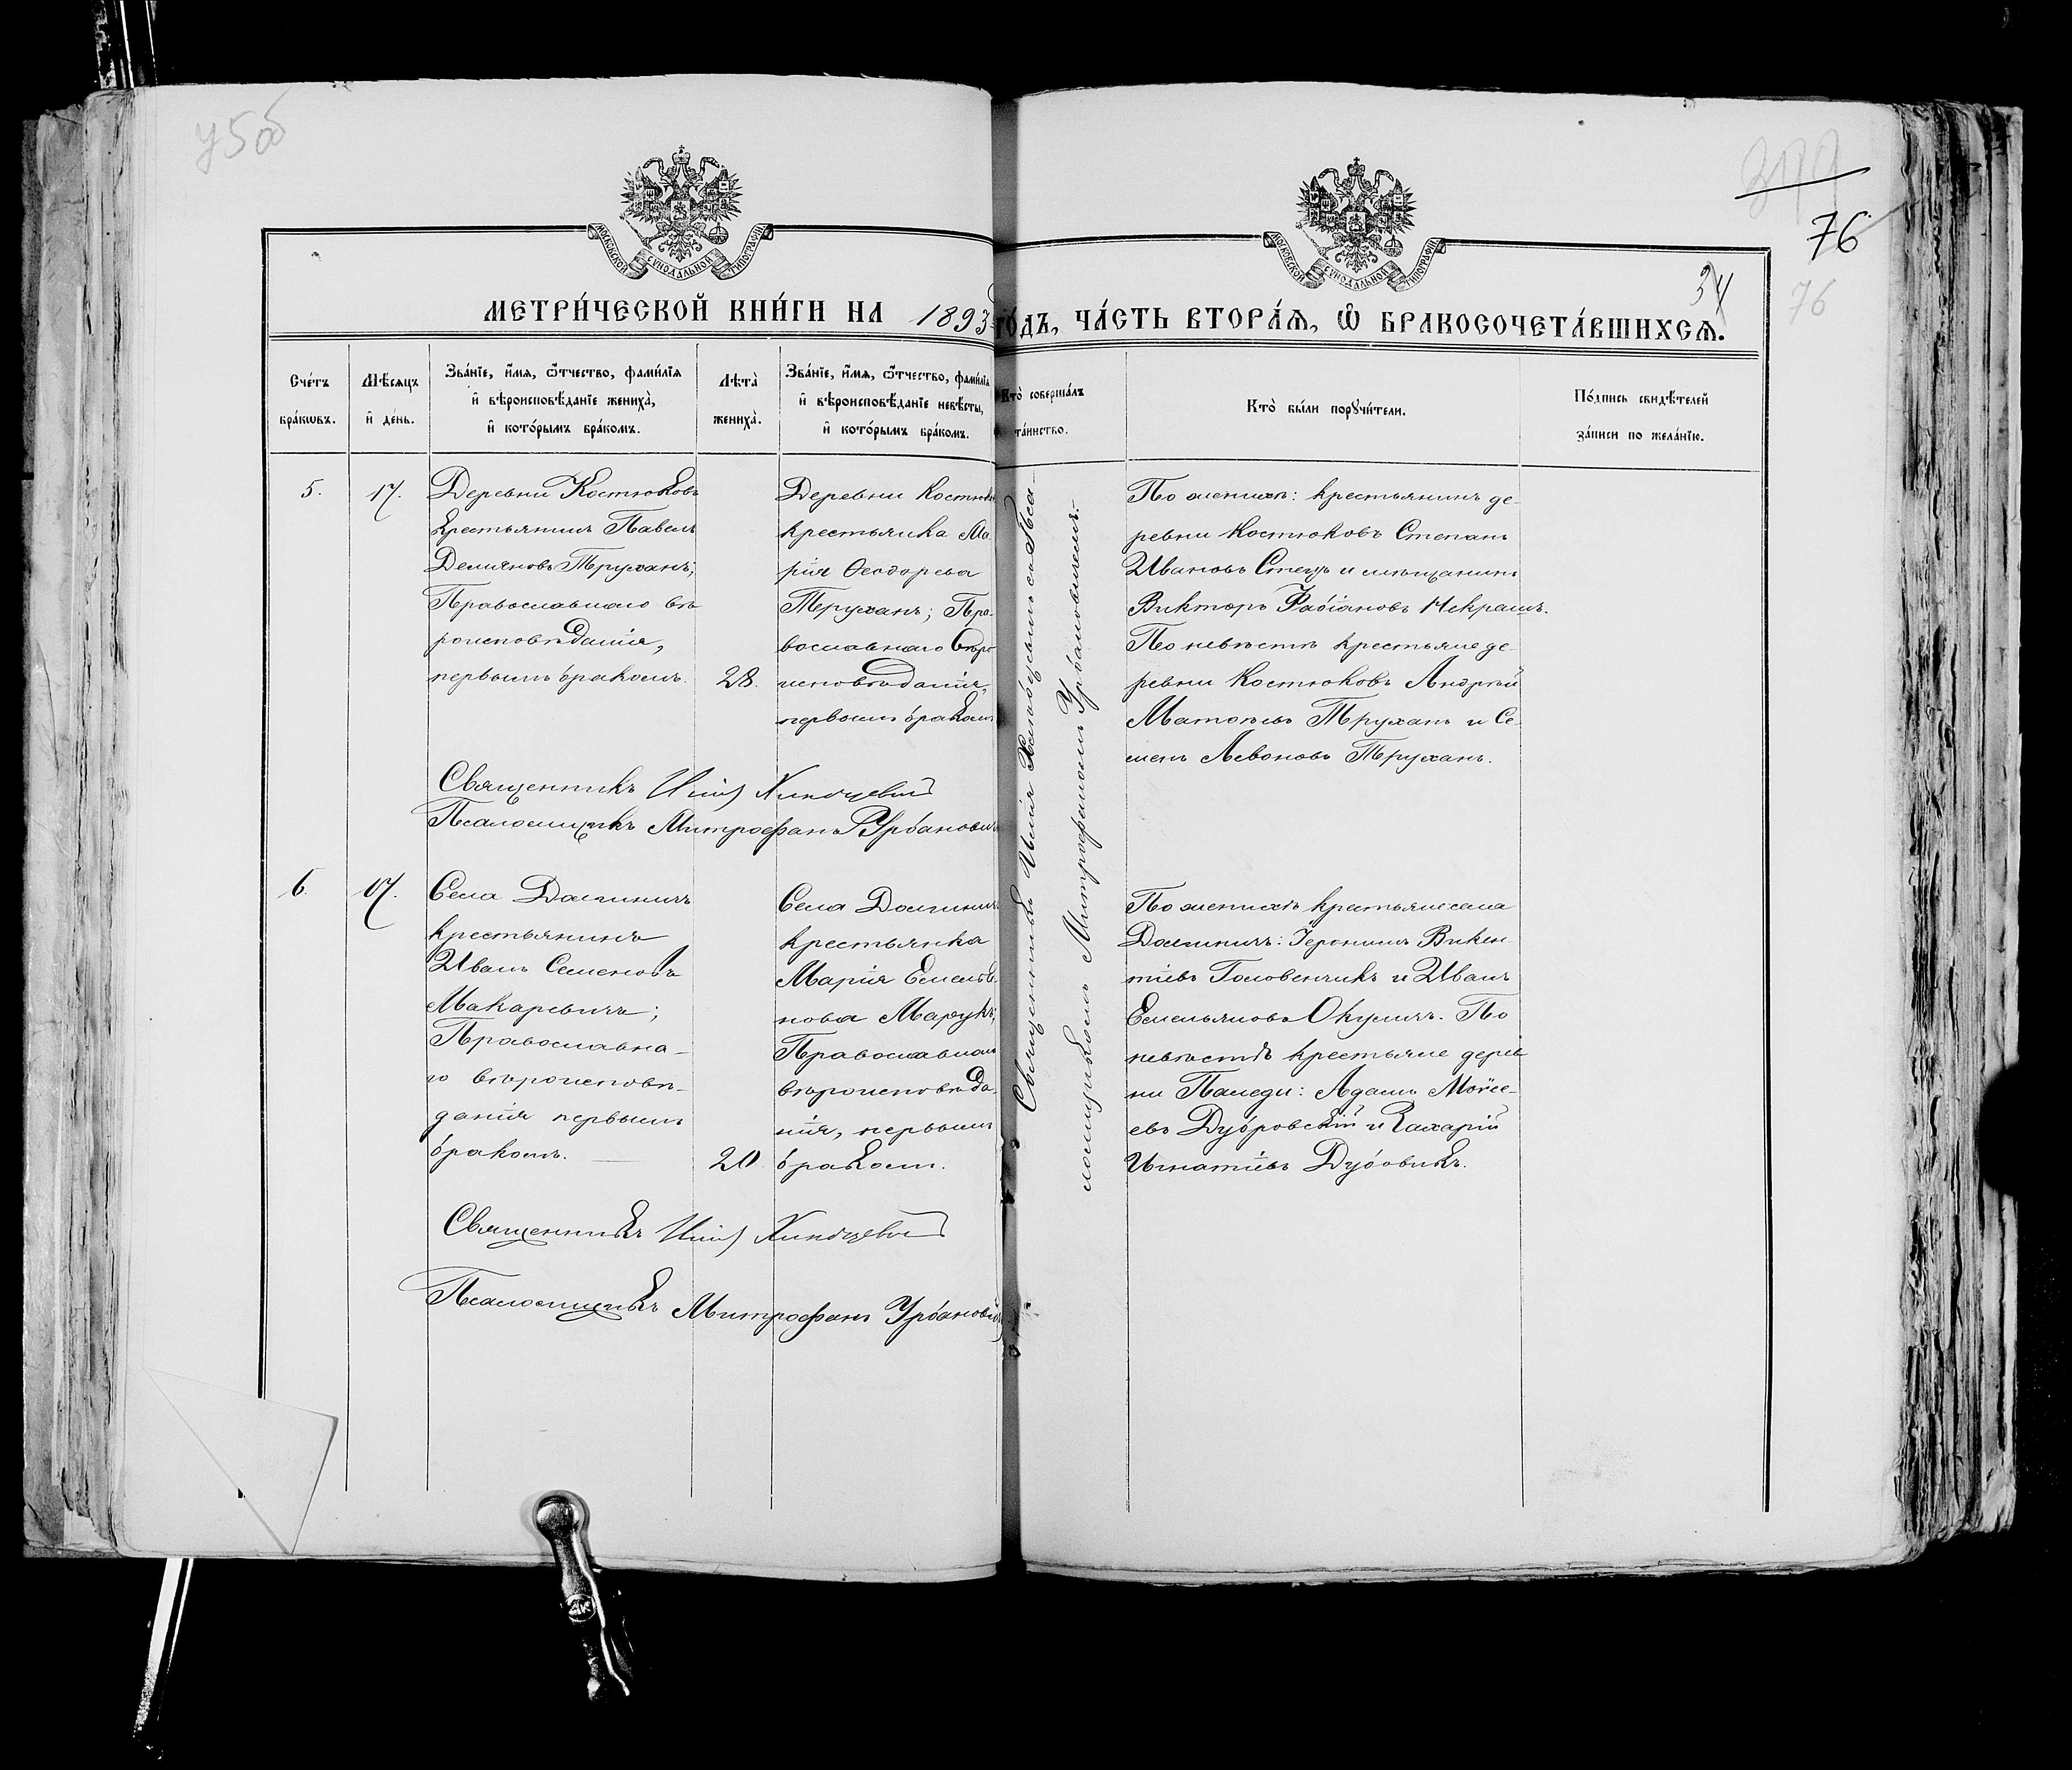 75об
76
34
76
МОСКОВСКОЙ СУНОДАЛЬНОЙ ТИПОГРАФІИ
МОСКОВСКОЙ СУНОДАЛЬНОЙ ТИПОГРАФІИ
МЕТРИ́ЧЕСКОЙ КНИ́ГИ НА 1893 ГО́ДЪ, ЧА́СТЬ ВТОРА́Я, Ѡ҆ БРАКОСОЧЕТА́ВШИХСѦ.
Сче́тъ
бра́кѡвъ.
Мѣ́сяцъ
и҆ де́нь.
Зва́нїе, и҆́мя, ѻ҆́тчество, фами́лїя
и҆ вѣроисповѣ́данїе жениха̀,
и҆ кото́рымъ бра́комъ.
Лѣ́та̀
жениха̀.
Зва́нїе, и҆́мя, ѻ҆́тчество, фами́лїя
и҆ вѣроисповѣ́данїе невѣ́сты,
и҆ кото́рымъ бра́комъ.
Кто̀ соверша́лъ
та́инство.
Кто̀ бы́ли порꙋчи́тели.
По́дпись свидѣ́телей
за́писи по жела́нїю.
5.
17.
Деревни Костюковъ
крестьянинъ Павелъ
Демьяновъ Труханъ;
Православнаго вѣ
роисповѣданія,
первымъ бракомъ.
28.
Деревни Костюк
крестьянка Ма
рія Ѳеодорова
Труханъ; Пра-
вославнаго Вѣро
исповѣданія,
первымъ бракомъ
Священникомъ Ильія Хлѣбцевымъ со Пса-
ломщикомъ Митрофаномъ Урбановичемъ.
По женихѣ: крестьянинъ де-
ревни Костюковъ Степанъ
Ивановъ Стецъ и мѣщанинъ
Викторъ Фабіановъ Некрашъ.
По невѣстѣ крестьяне де-
ревни Костюковъ Андрей
Матѳѣевъ Труханъ и Се-
менъ Левоновъ Труханъ.
Священникъ Илія Хлѣбцевичъ
Псаломщикъ Митрофанъ Урбановичъ
6.
17.
Села Долгиничъ
крестьянинъ
Иванъ Семеновъ
Макаревичъ;
Православна-
го вѣроисповѣ-
данія первымъ
бракомъ.
20
Села Долгиничъ
крестьянка
Марія Емелья
нова Марукъ;
Православнаго
вѣроисповѣда-
нія, первымъ
бракомъ.
По женихѣ крестьяне села
Долгиничъ: Іеронимъ Викен-
тіевъ Головенчикъ и Иванъ
Емельяновъ Окуличъ. По
невѣстѣ крестьяне дерев
ни Паледи: Адамъ Моисе-
евъ Дубровскій и Захарій
Игнатіевъ Дубовикъ.
Священникъ Илія Хлѣбцевичъ
Псаломщикъ Митрофанъ Урбановичъ